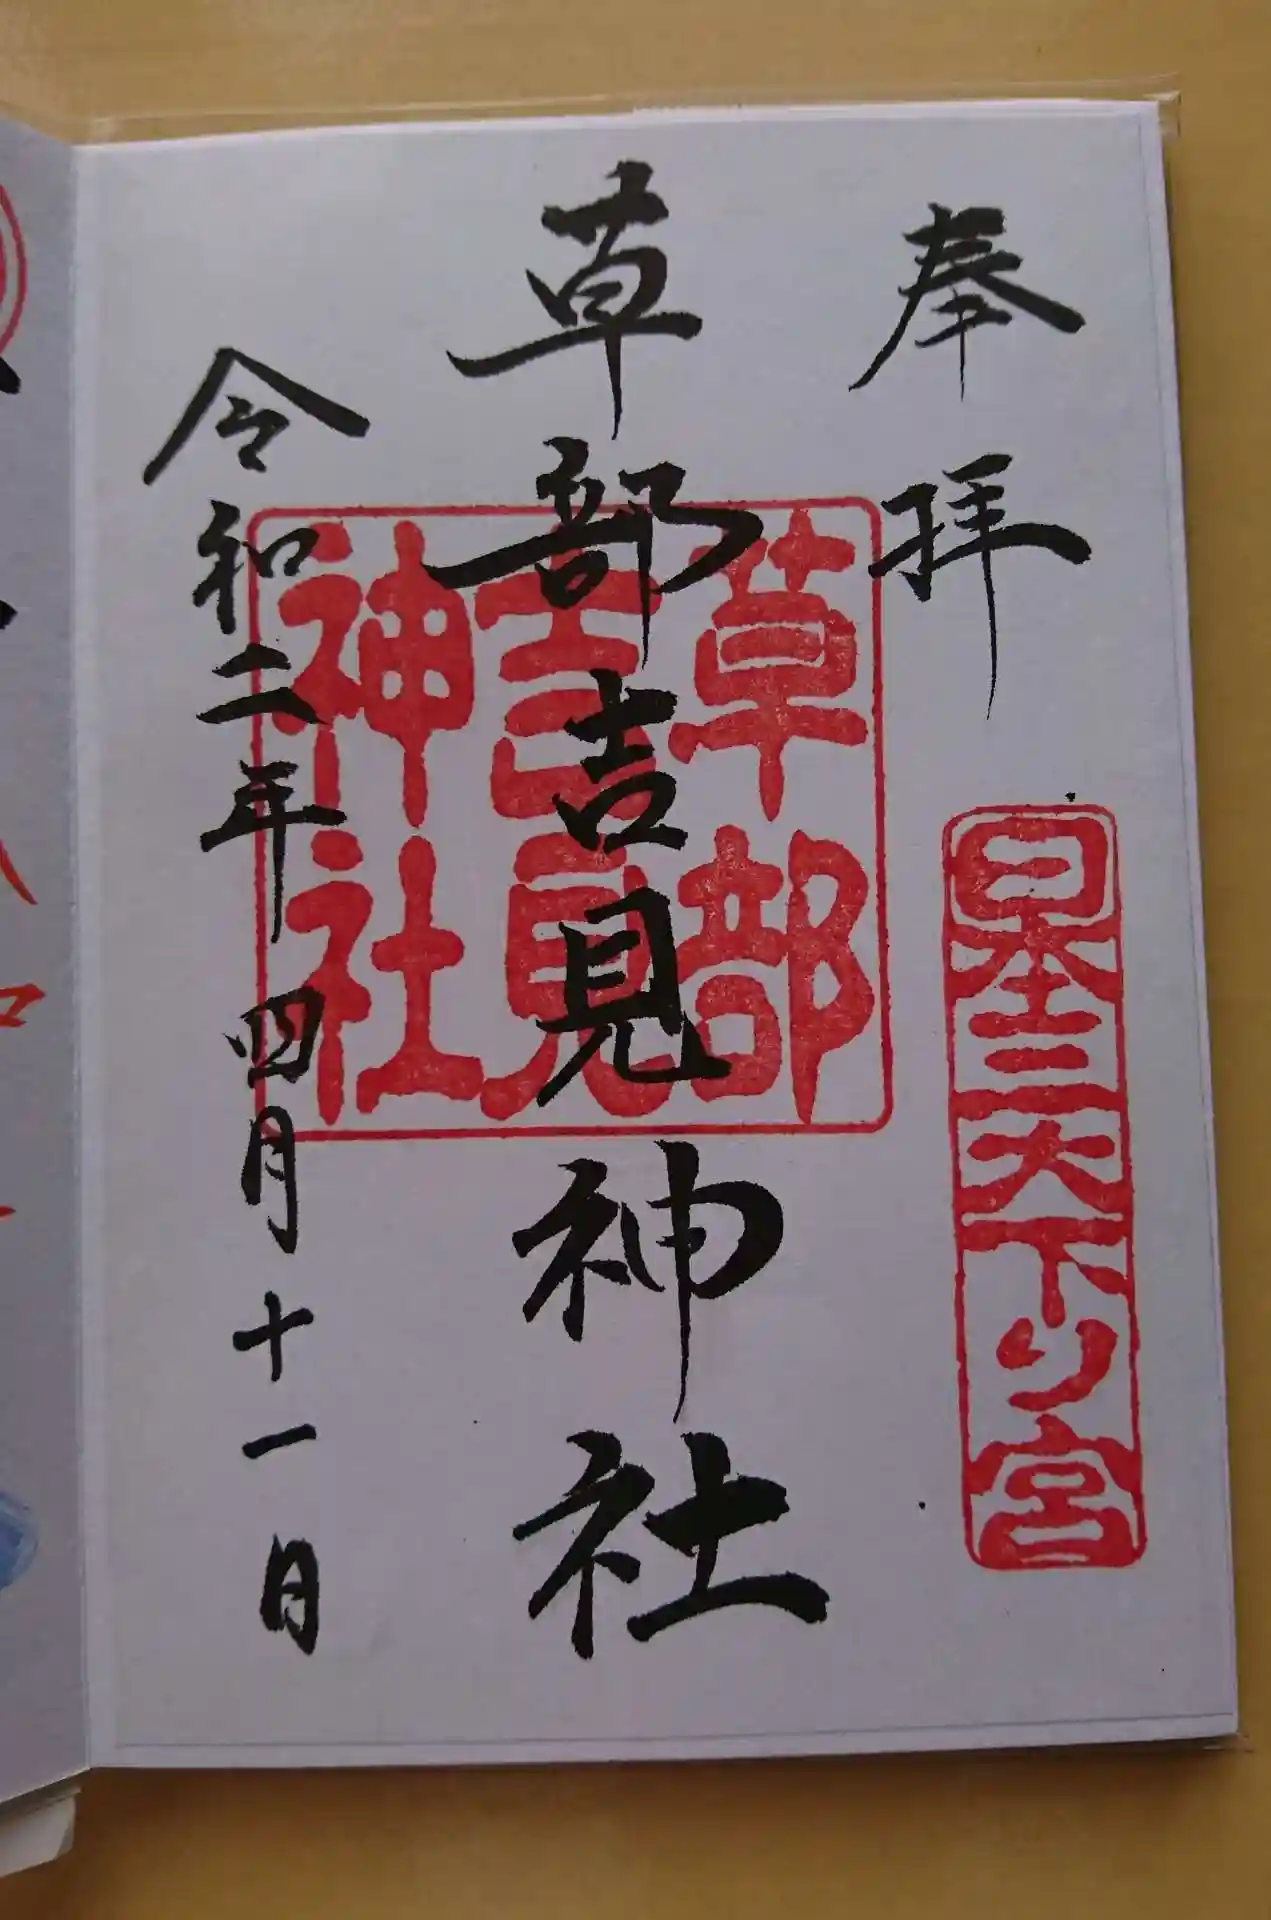 奉拝
日本三大下り宮
草部吉見神社
草部
吉見
神社
令和二年四月十一日